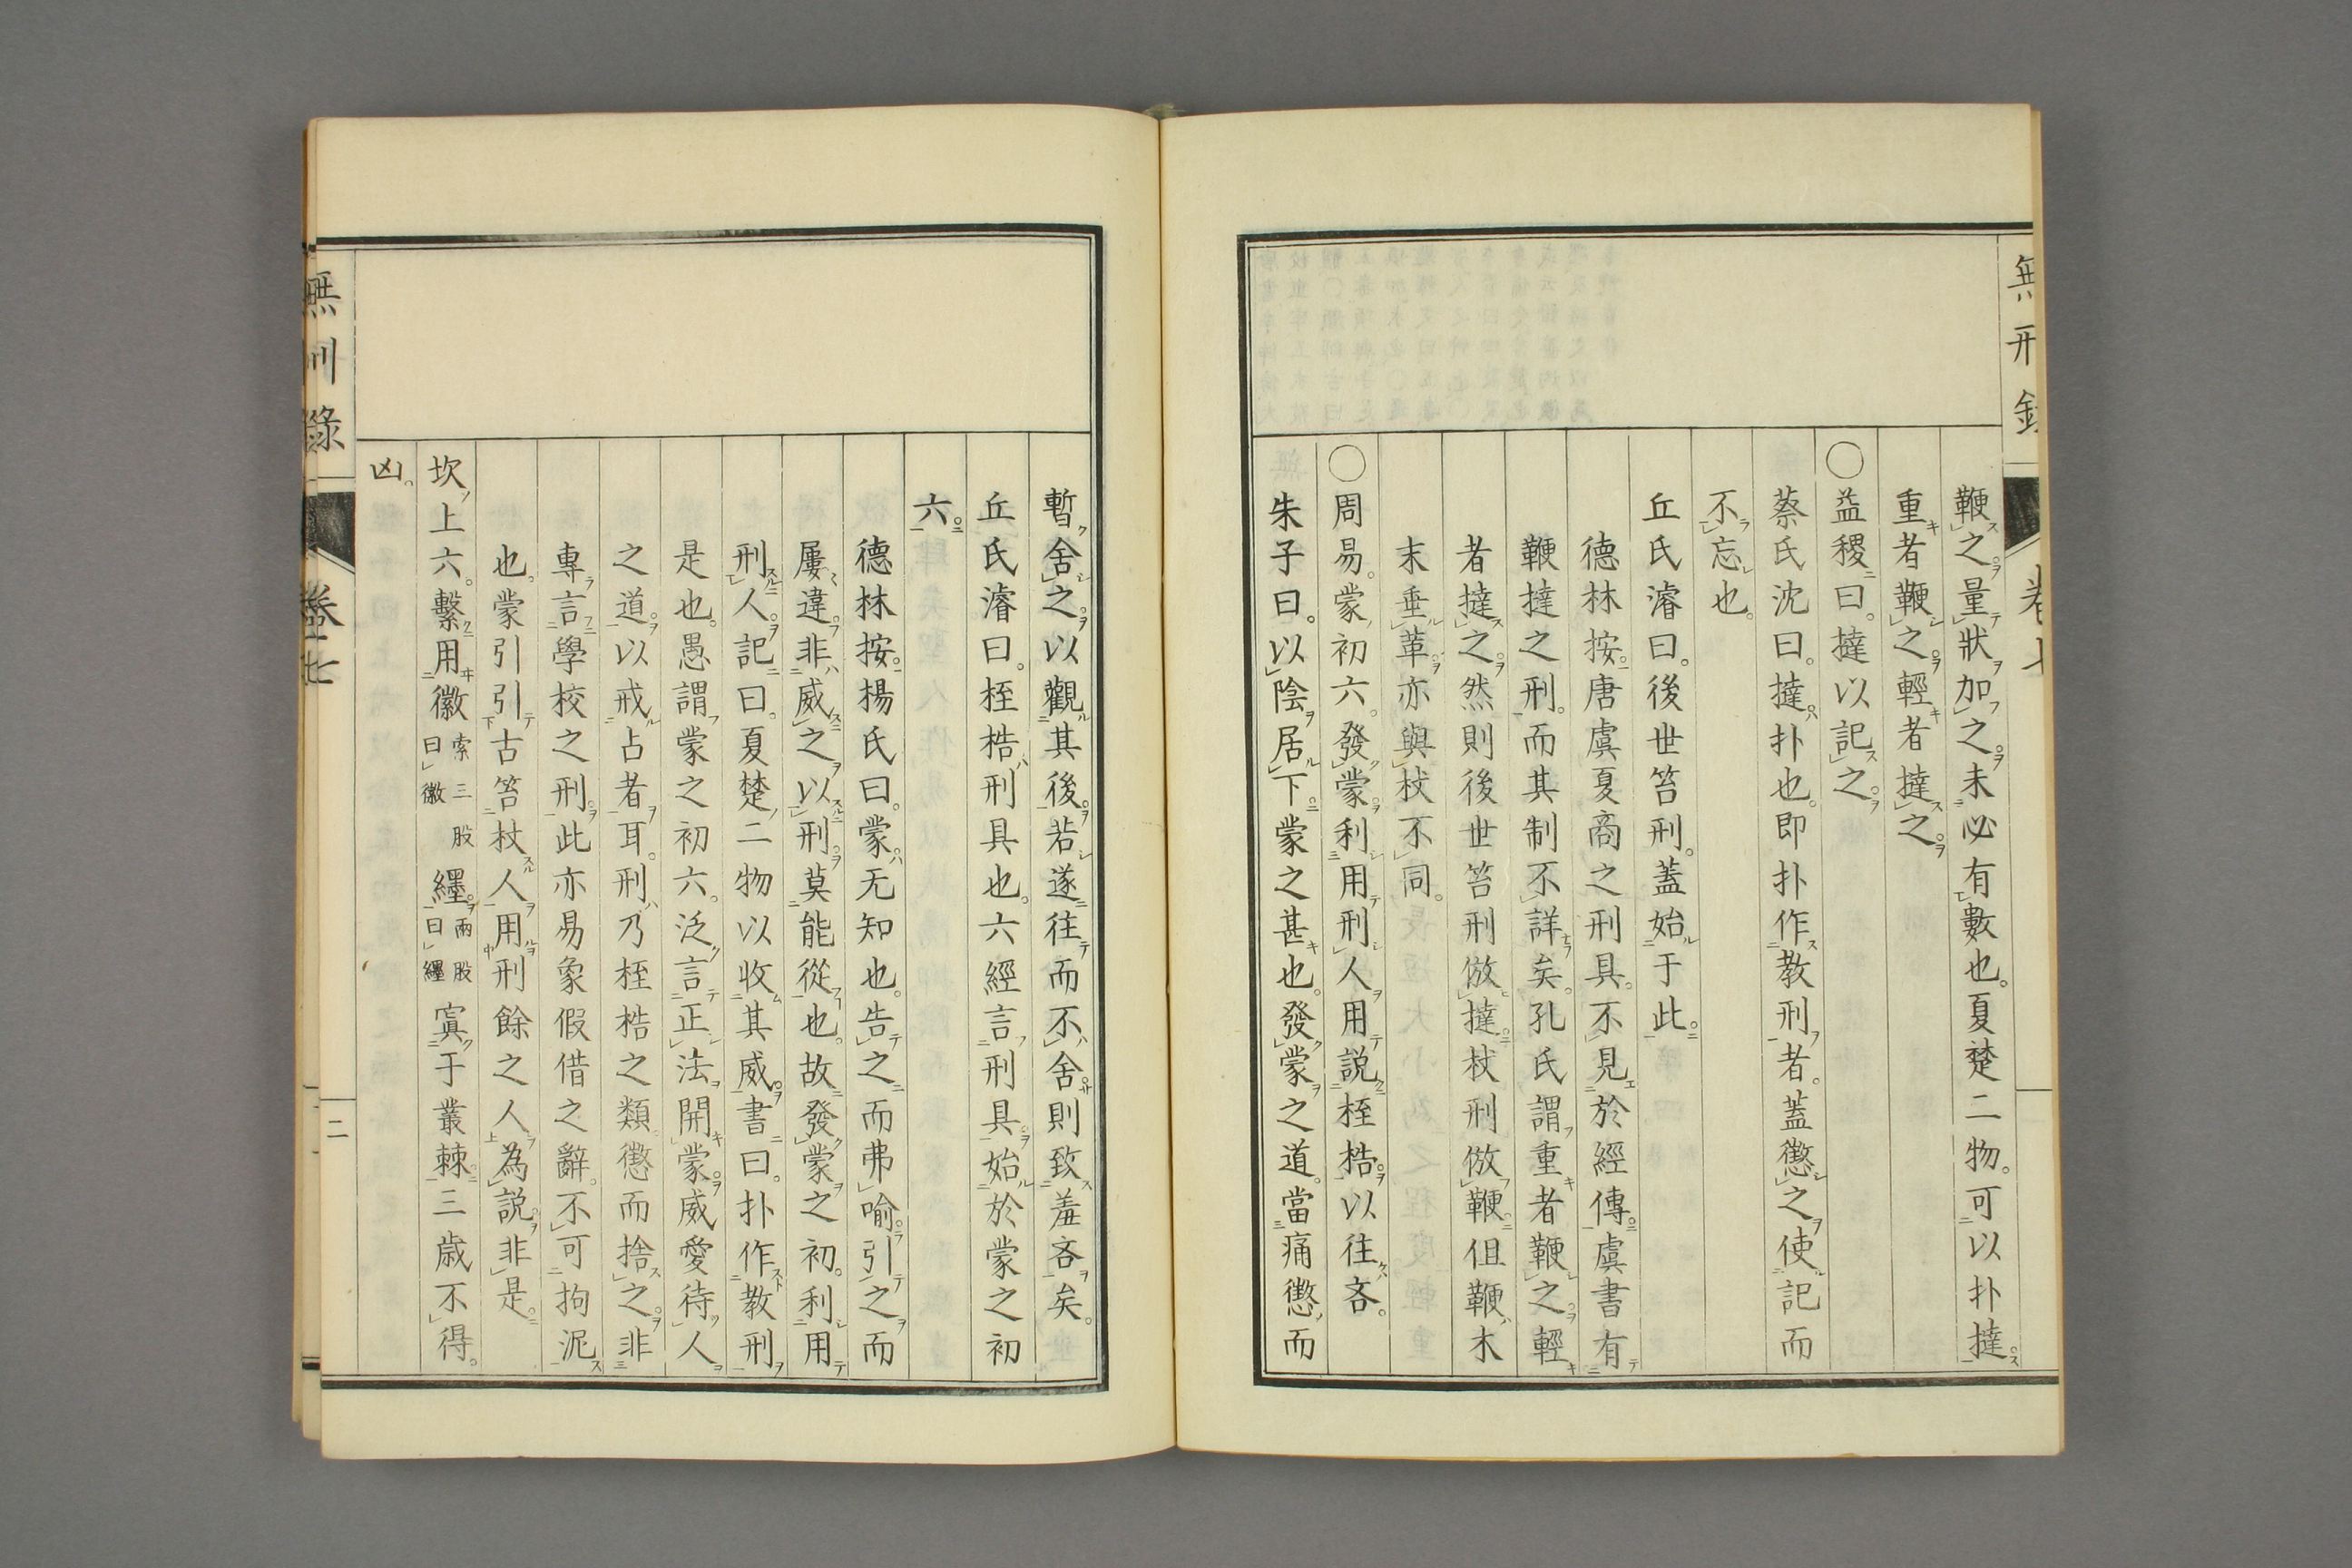 無刑録 卷七
鞭之量狀加之未必有數也。夏楚二物。可以扑撻
重者鞭之輕者撻之
○益稷曰。撻以記之
蔡氏沈曰。撻扑也。即扑作教刑者。蓋懲之使記而
不忘也。
丘氏濬曰。後世笞刑。蓋始于此
德林按唐虞夏商之刑具。不見於經傳虞書有
鞭撻之刑。而其制不詳矣。孔氏謂重者鞭之輕
者撻之然則後世笞刑倣撻杖刑倣鞭但鞭木
末垂革亦與杖不同。
○周易。蒙初六。發蒙利用刑人用説桎梏以往吝。
朱子曰。以陰居下蒙之甚也。發蒙之道。當痛懲而
暫舍之以觀其後若遂往而不舍則致羞吝矣。
丘氏濬曰。桎梏刑具也。六經言刑具始於蒙之初
六
德林按楊氏曰。蒙无知也。告之而弗喻引之而
屢違非威之以刑莫能從也。故發蒙之初。利用
刑人記曰。夏楚二物以收其威書曰。扑作教刑
是也。愚謂蒙之初六。泛言正法開蒙威愛待人
之道以戒占者耳。刑乃桎梏之類懲而捨之非
專言學校之刑此亦易象假借之辭。不可拘泥
也。蒙引引古笞杖人用刑餘之人為説非是
坎上六。繫用徽索三股曰徽纆兩股曰纆寘于叢棘三歳不得。
凶。
無刑錄 卷七 二